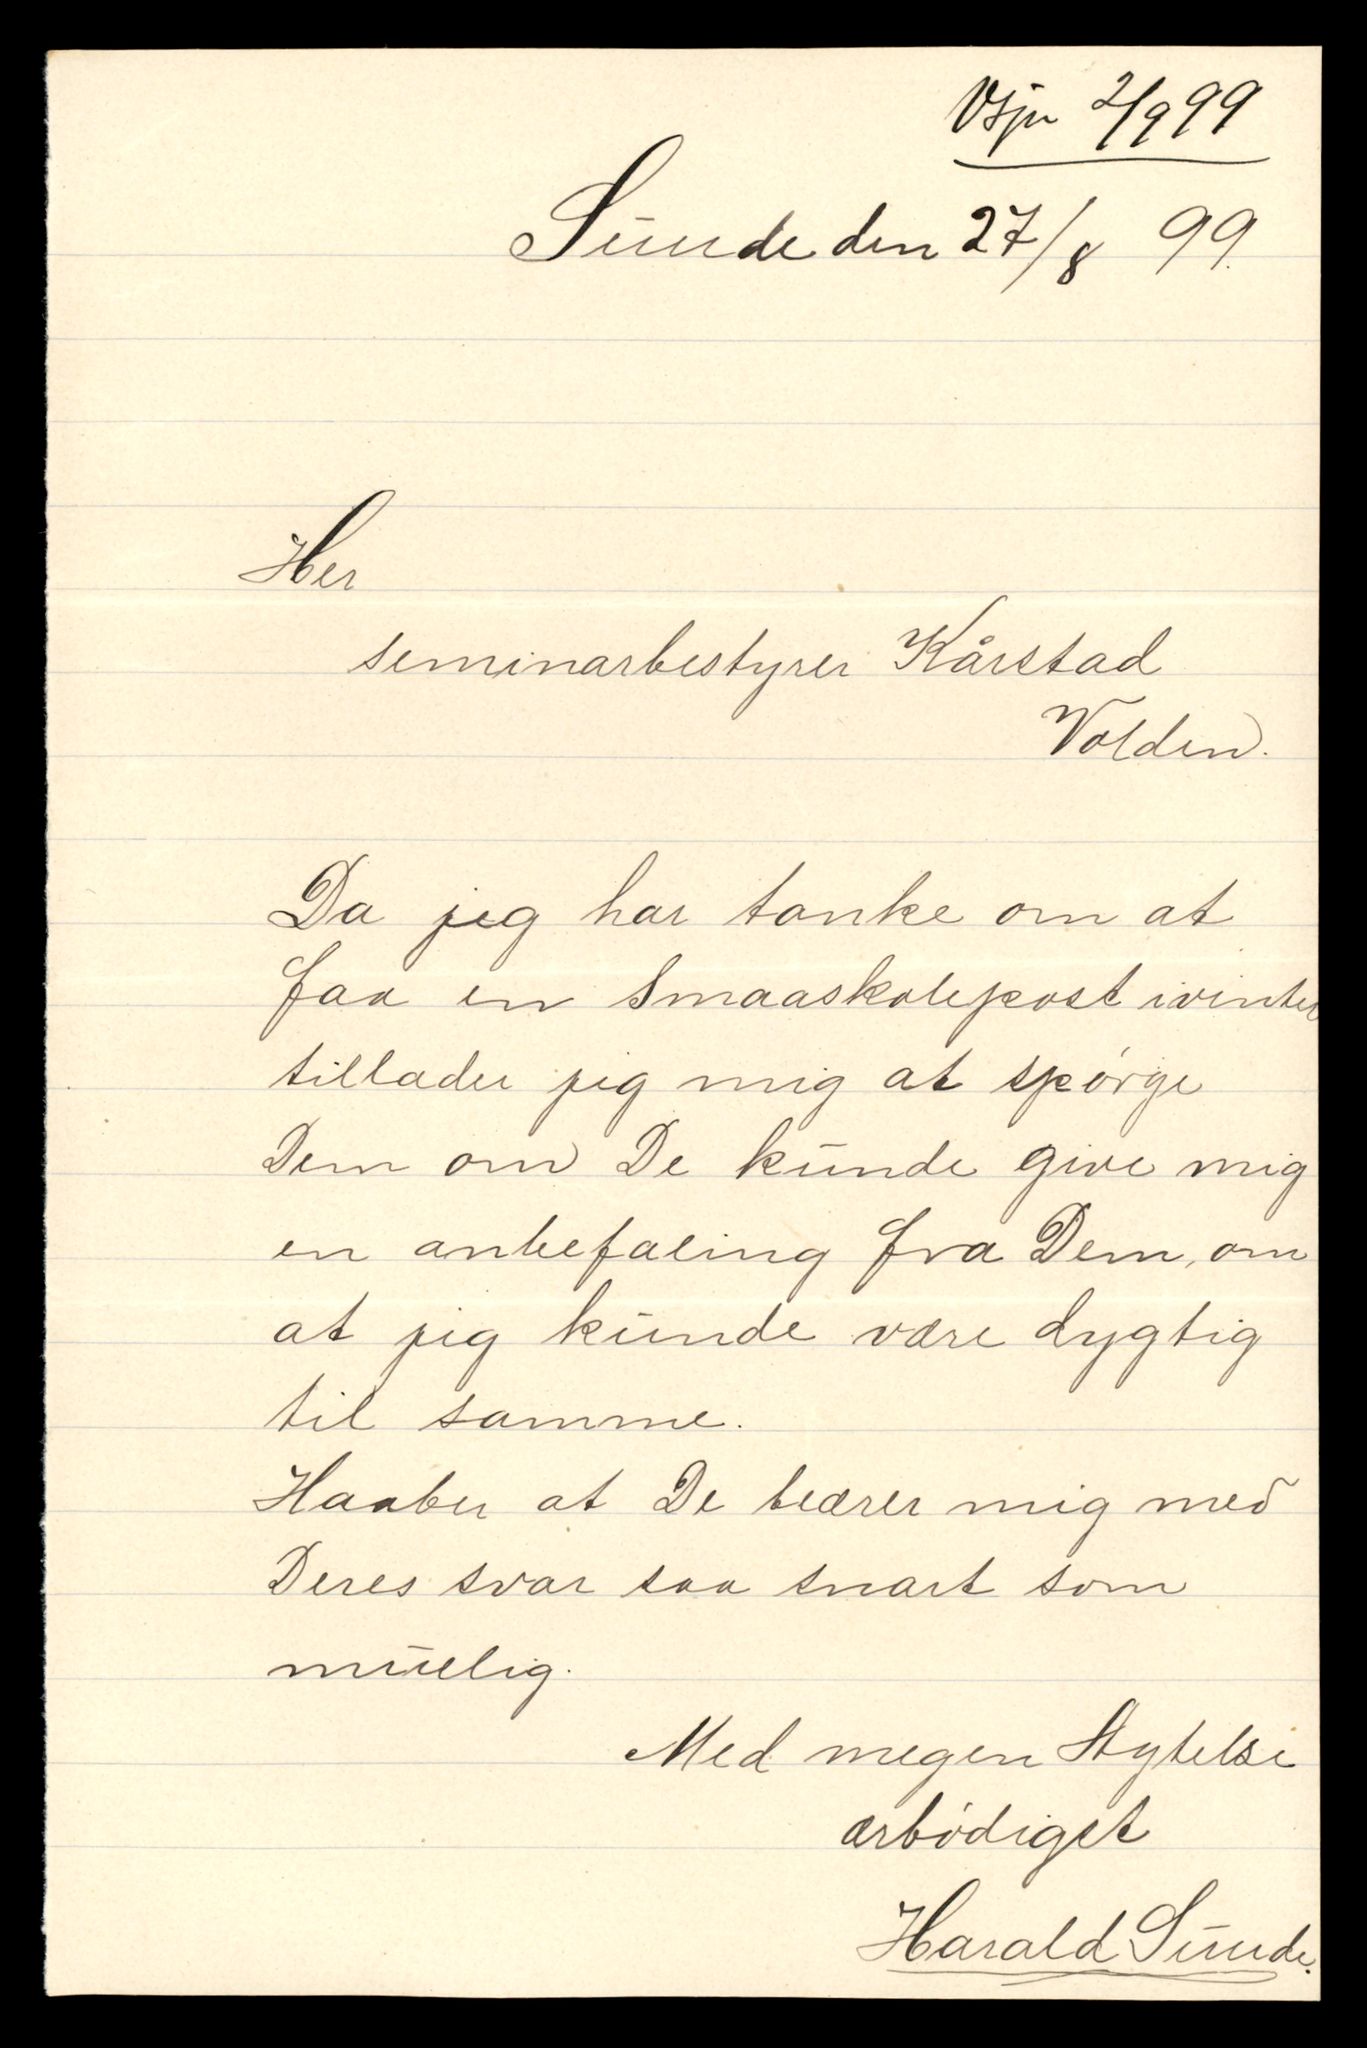 2/9 99
Sunde den 27/8 99.
Her
seminarbestyrer Kårstad
Volden.
Da jeg har tanke om at
faa en Smaaskolepost ivinter
tillader jeg mig at spørge
Dem om De kunde give mig
en anbefaling fra Dem, om
at jeg kunde være dygtig
til samme.
Haaber at De beærer mig med
Deres svar saa snart som
muelig.
Med megen Agtelse
ærbødigst
Harald Sunde.